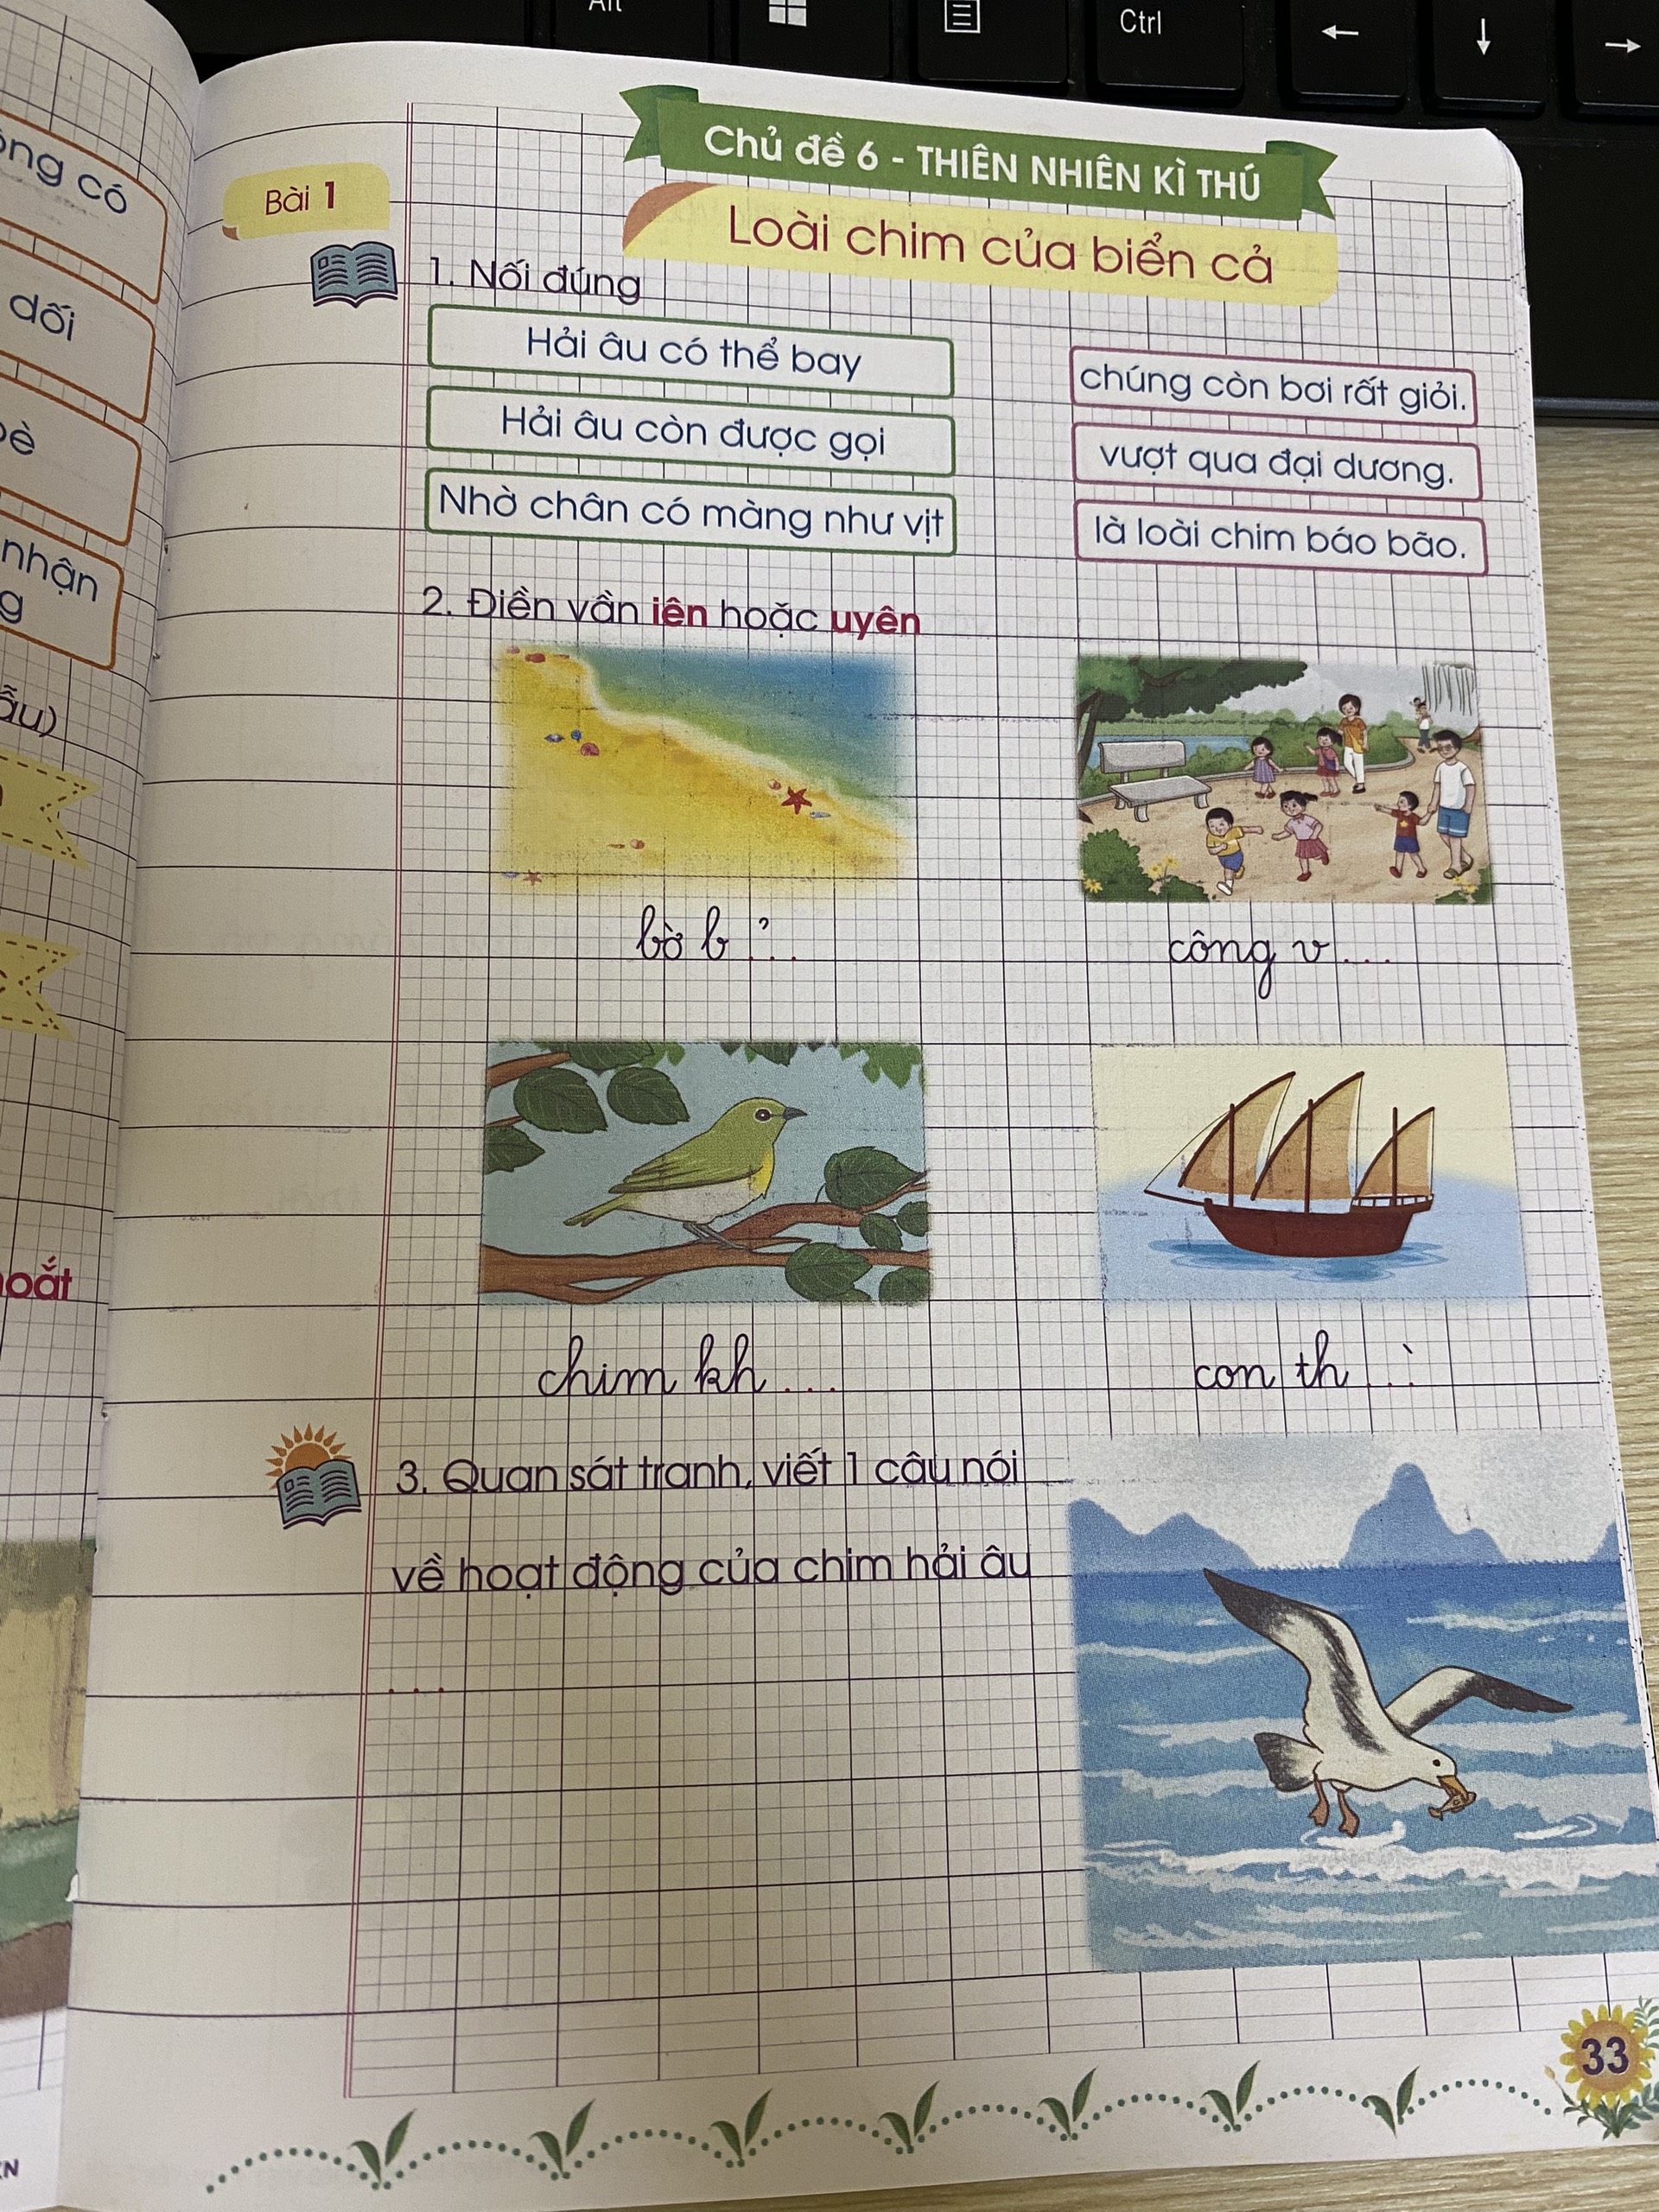 Alt
Ctrl
ông có
dối
bè
nhận
g
ẫu)
oắt
Chủ đề 6 - THIÊN NHIÊN KÌ THÚ
Bài 1
Loài chim của biển cả
1. Nối đúng
Hải âu có thể bay
chúng còn bơi rất giỏi.
Hải âu còn được gọi
vượt qua đại dương.
Nhờ chân có màng như vịt
là loài chim báo bão.
2. Điền vần iên hoặc uyên
bờ b ̉...
công v...
chim kh...
con th ̀...
3. Quan sát tranh, viết 1 câu nói
về hoạt động của chim hải âu
...
33